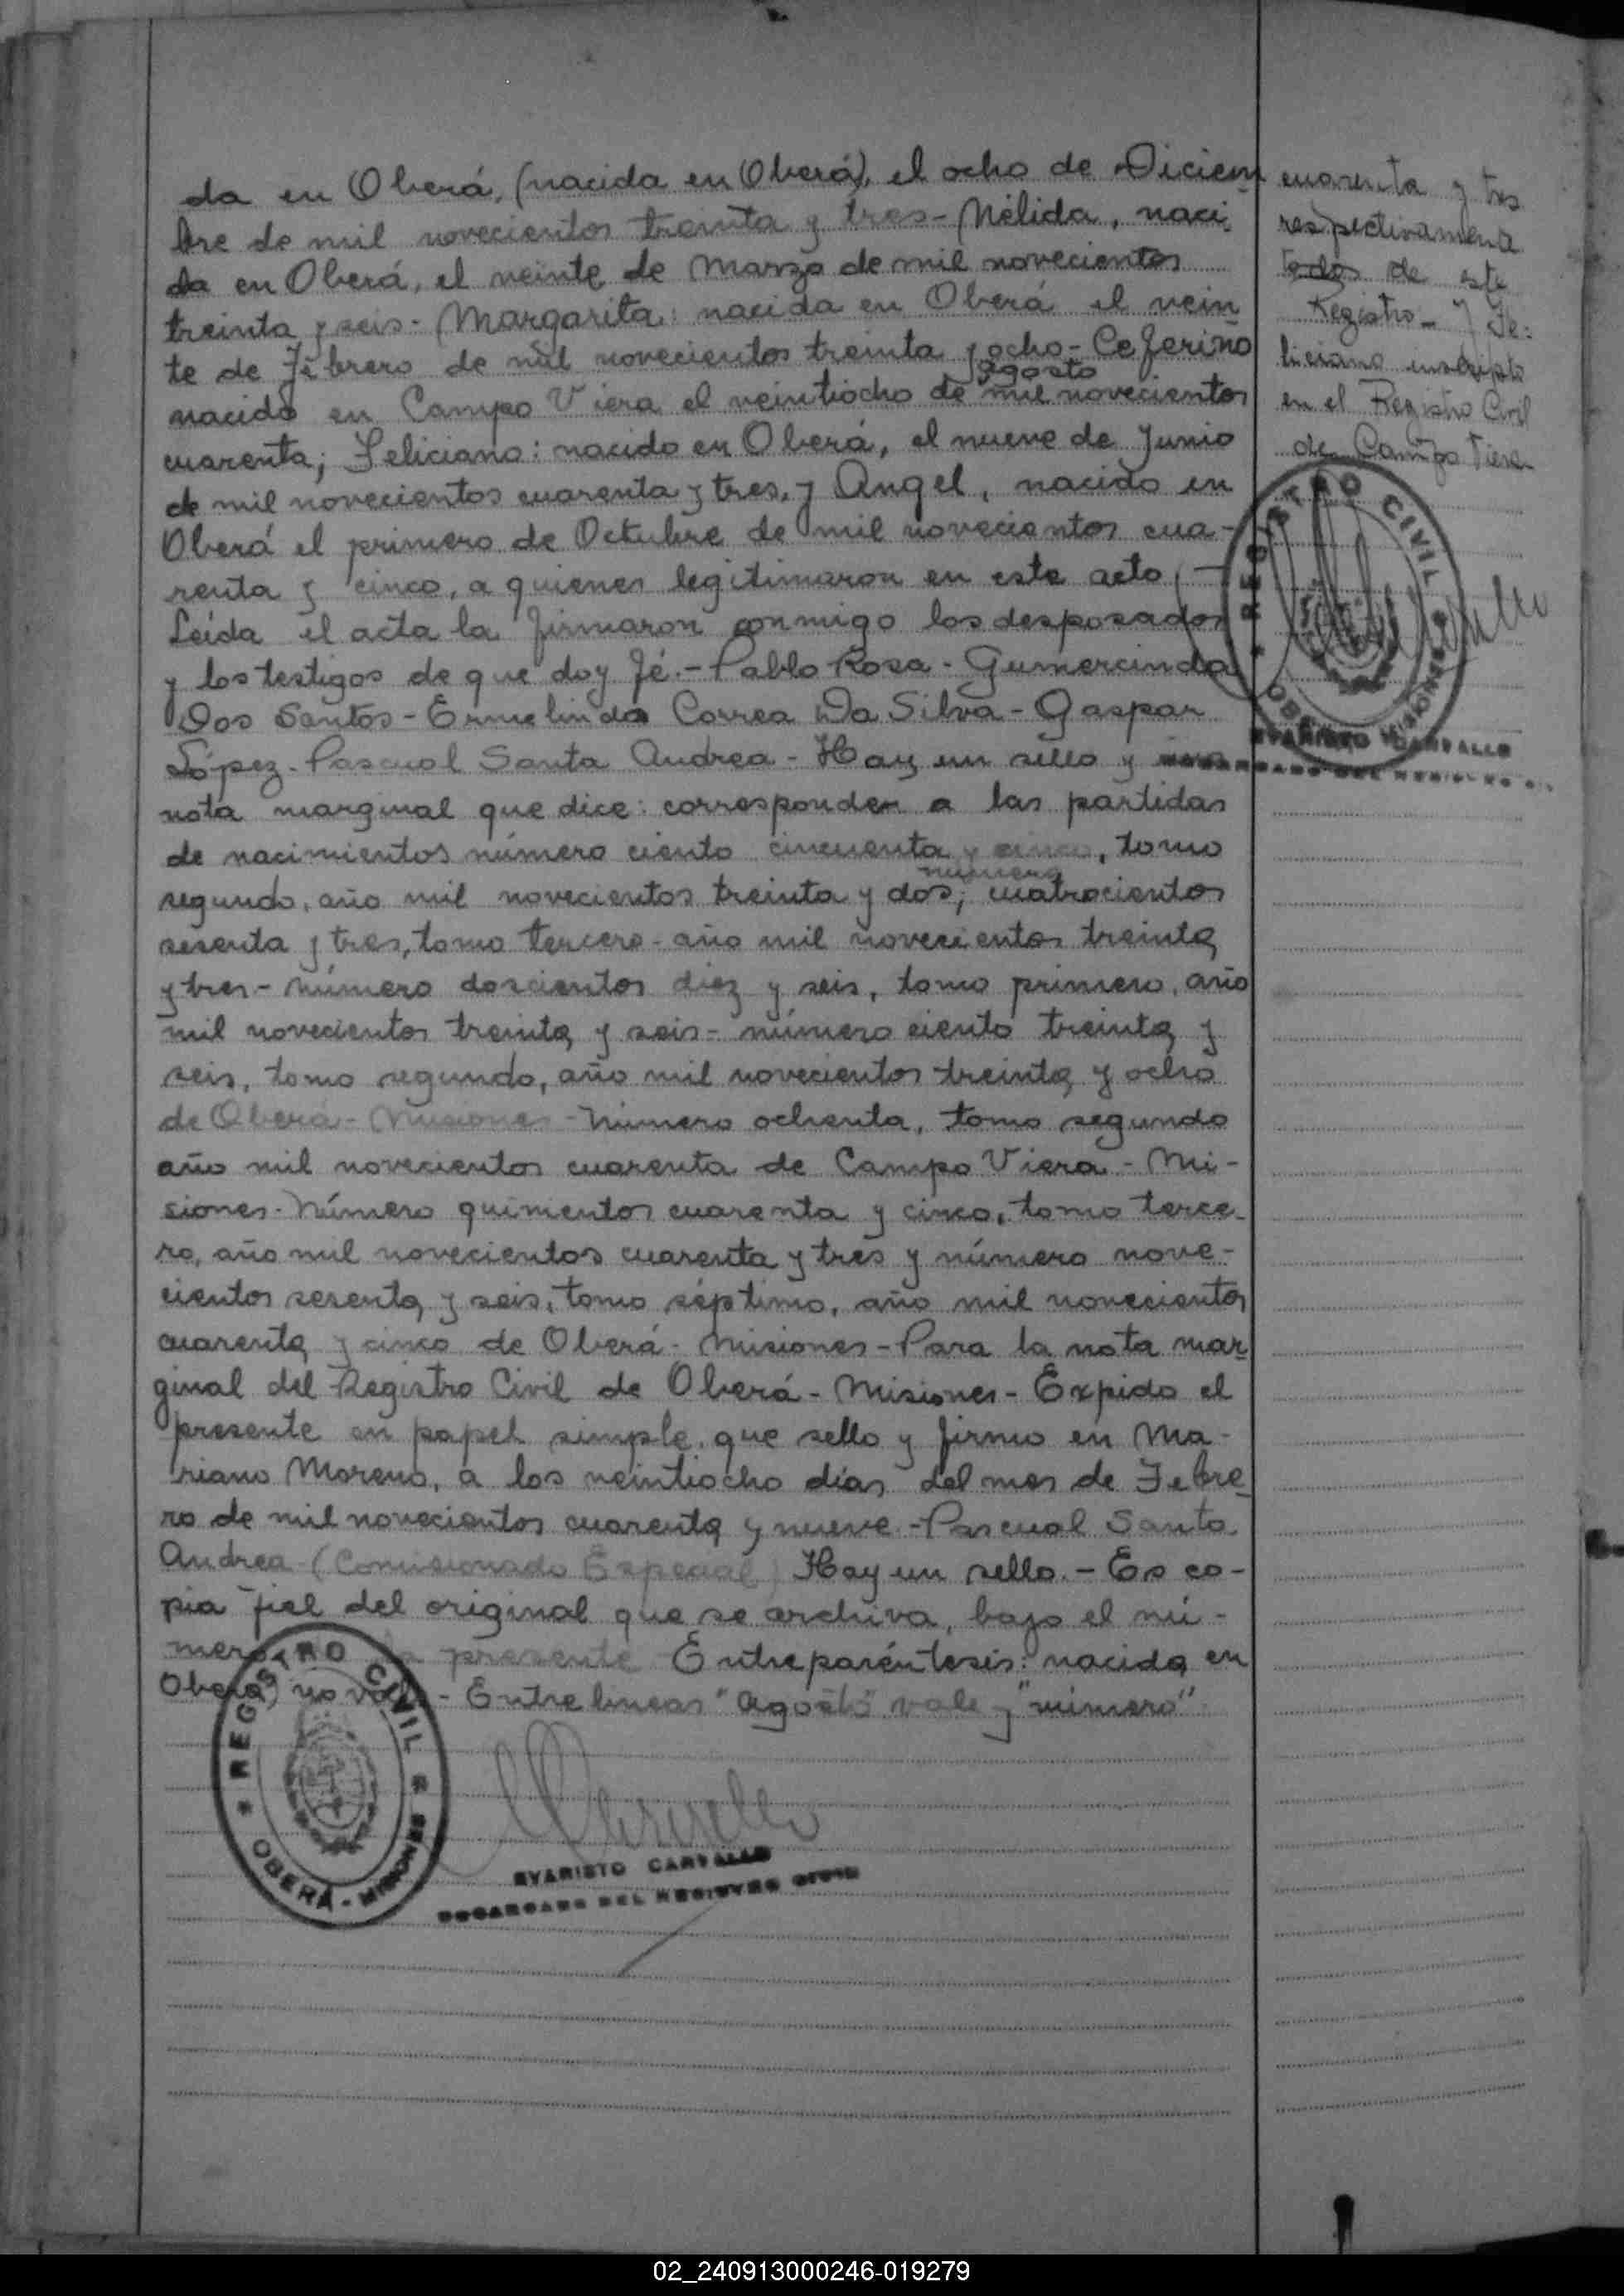 da en Oberá, (nacida en Oberá), el ocho de Diciem
bre de mil novecientos treinta y tres - Nélida, naci
da en Oberá, el veinte de Marzo de mil novecientos
treinta y seis - Margarita: nacida en Oberá el vein
te de Febrero de mil novecientos treinta y ocho - Ceferino
agosto
nacido en Campo Viera el veintiocho de mil novecientos
cuarenta; Feliciano: nacido en Oberá, el nueve de Junio
de mil novecientos cuarenta y tres, y Angel, nacido en
Oberá el primero de Octubre de mil novecientos cua-
renta y cinco, a quienes legitimaron en este acto, -
Leída el acta la firmaron conmigo los desposados
y los testigos de que doy fé. - Pablo Rosa - Gumercinda
Dos Santos - Ermelinda Correa Da Silva - Gaspar
López - Pascual Santa Andrea - Hay un sello y una
nota marginal que dice: corresponden a las partidas
de nacimientos número ciento cincuenta y cinco, tomo
número
segundo, año mil novecientos treinta y dos; cuatrocientos
sesenta y tres, tomo tercero - año mil novecientos treinta
y tres - número doscientos diez y seis, tomo primero, año
mil novecientos treinta y seis - número ciento treinta y
seis, tomo segundo, año mil novecientos treinta y ocho
de Oberá - Misiones - Número ochenta, tomo segundo
año mil novecientos cuarenta de Campo Viera - Mi-
siones - Número quinientos cuarenta y cinco, tomo terce-
ro, año mil novecientos cuarenta y tres y número nove-
cientos sesenta y seis, tomo séptimo, año mil novecientos
cuarenta y cinco de Oberá - Misiones - Para la nota mar
ginal del Registro Civil de Oberá - Misiones - Expido el
presente en papel simple, que sello y firmo en Ma-
riano Moreno, a los veintiocho días del mes de Febre
ro de mil novecientos cuarenta y nueve - Pascual Santa
Andrea (Comisionado Especial) Hay un sello. - Es co-
pia fiel del original que se archiva, bajo el nú-
mero la presente Entreparéntesis: nacida en
Oberá) no vale - Entre lineas "agosto" vale y "número"
REGISTRO CIVIL
OBERÁ - MISIONES
EVARISTO CARVALLO
ENCARGADO DEL REGISTRO CIVIL
cuarenta y tres
respectivament
todos de este
Registro - y Fe-
liciano inscripto
en el Registro Civil
de Campo Viera
REGISTRO CIVIL
OBERÁ MISIONES
EVARISTO CARVALLO
ENCARGADO DEL REGISTRO
02_240913000246-019279